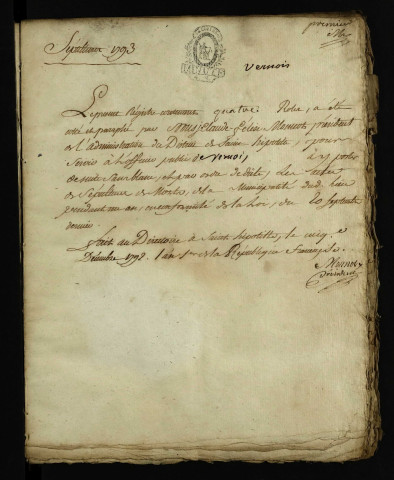 premier
Sépultures 1793
Vernois
Le présent Régistre contenant quatre Roles, a été
coté et paraphé par Nous Claude
de l'administration du District de Saint hipolite, pour
Servir à l'officier public de Vernois, à y porter
de suite sans blanc, et par ordre de date, Les actes
de Sépulture de Morts, de la Municipalité dud. lieu
pendant un an, en conformité de la Loi, du 20 Septembre
dernier.
fait au Directoire à Saint hipolitte, le cinq
Décembre 1792. l'an 1er de la République Française.